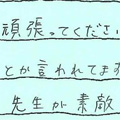 頑張ってください
とか言われてます
先生が素敵